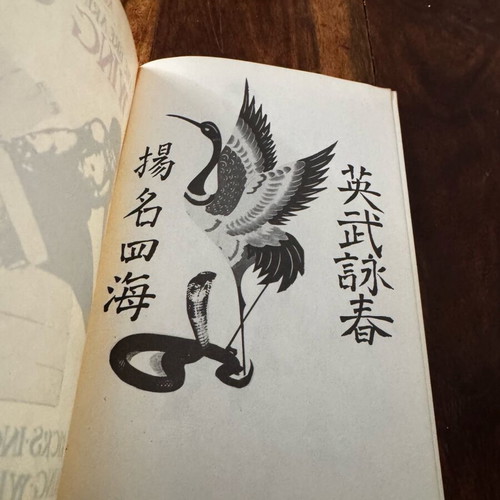 英武詠春
揚名四海